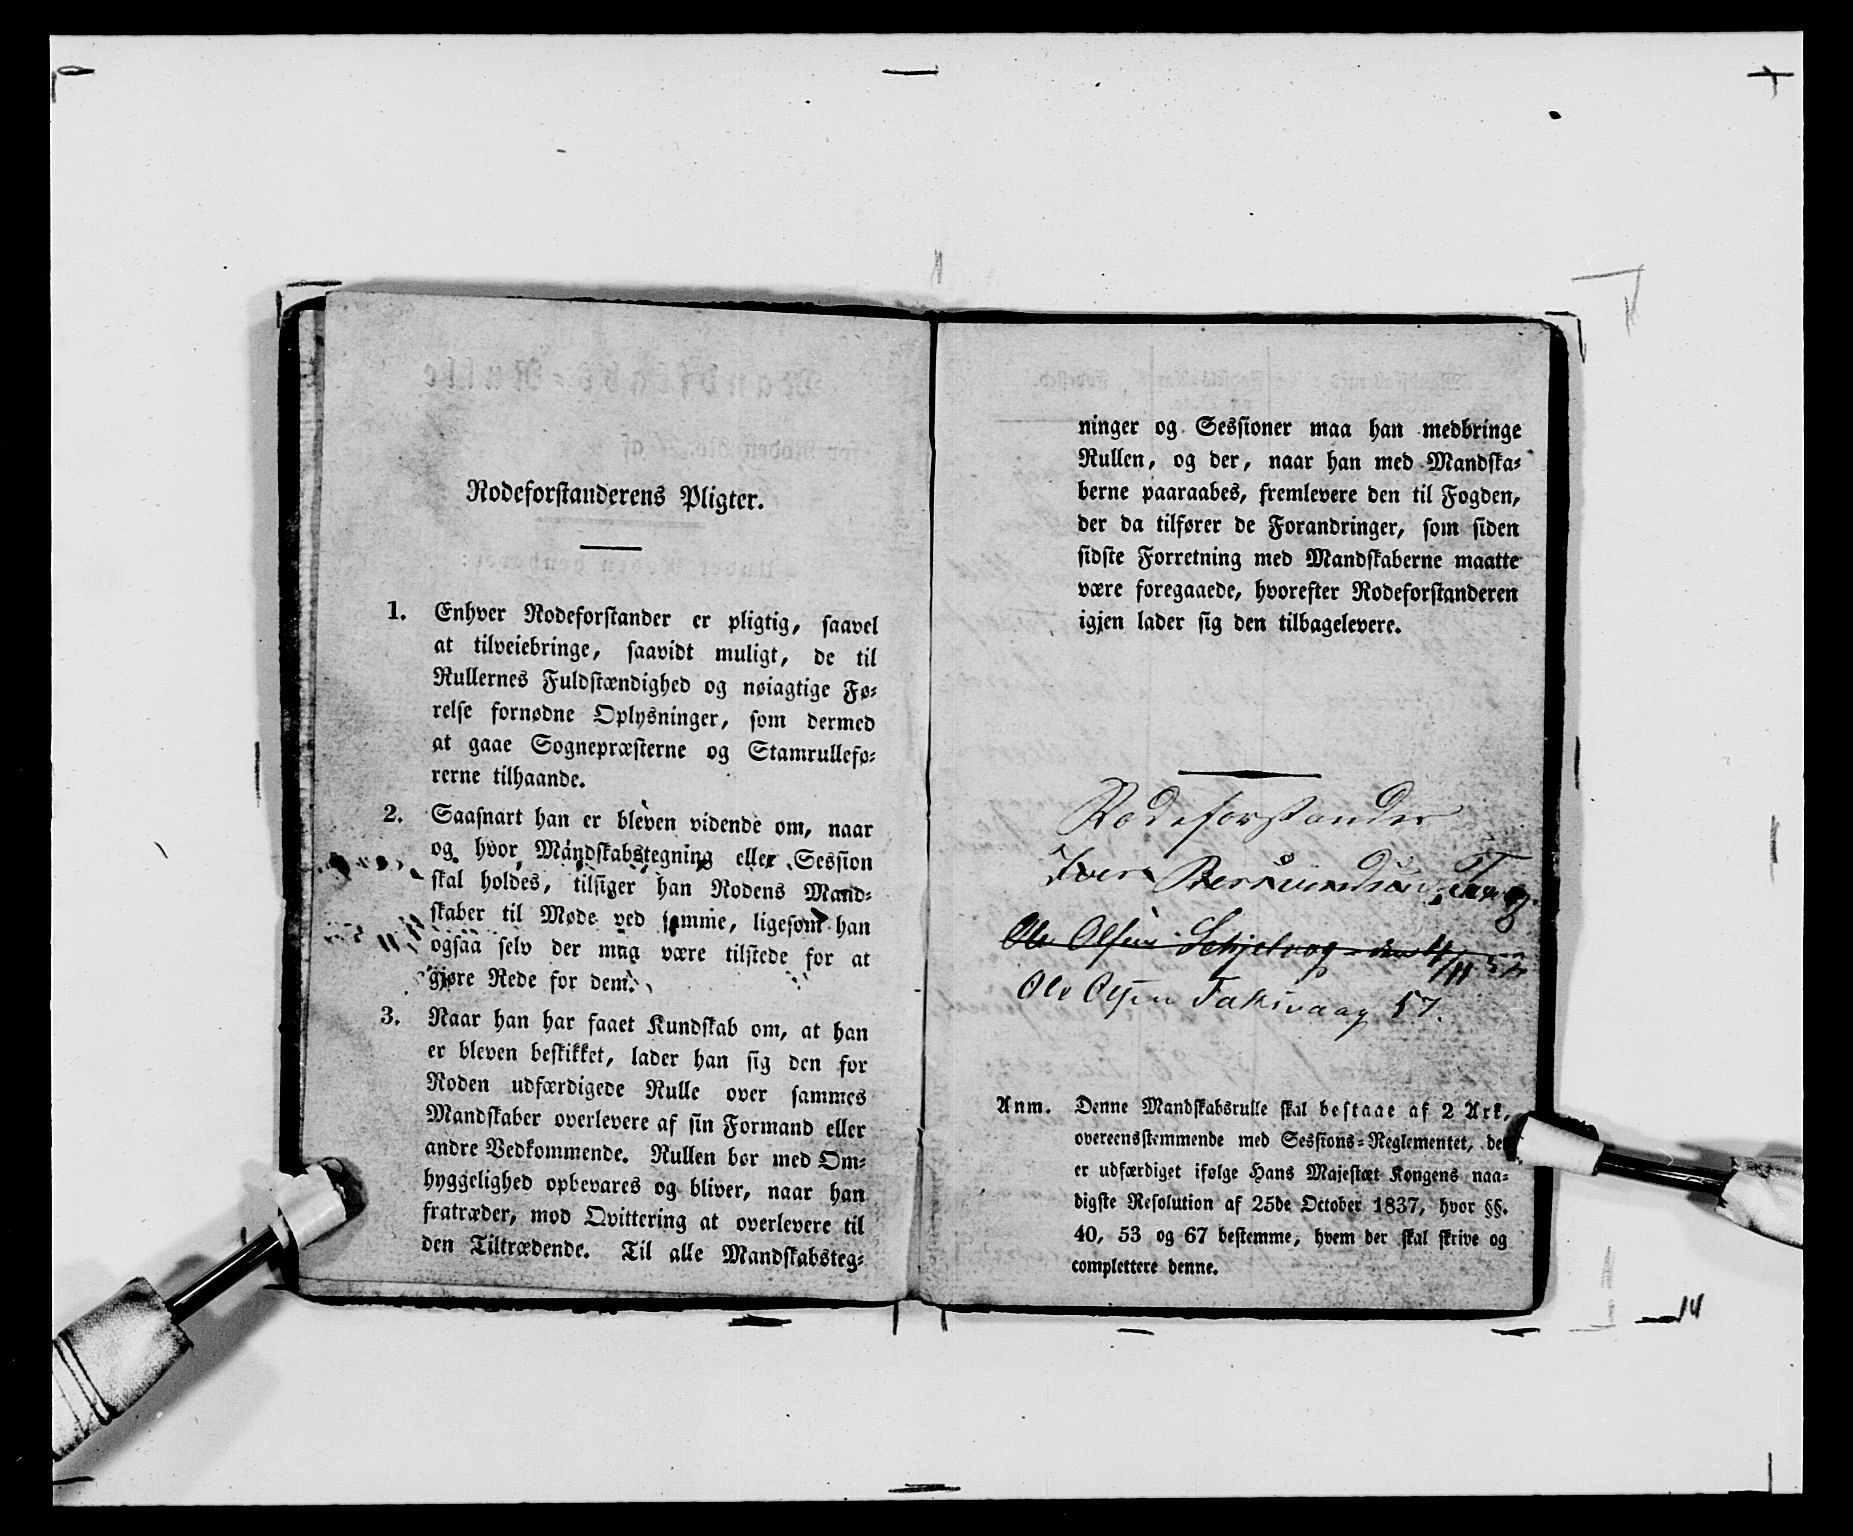 Rodeforstanderens Pligter.
1. Enhver Rodeforstander er pligtig, saavel
at tilveiebringe, saavidt muligt, de til
Rullernes Fuldstændighed og nøiagtige Fø-
relse fornødne Oplysninger, som dermed
at gaae Sognepræsterne og Stamrullefø-
rerne tilhaande.
2. Saasnart han er bleven vidende om, naar
og hvor Mandskabstegning eller Session
skal holdes, tilsiger han Rodens Mand-
skaber til Møde ved samme, ligesom han
ogsaa selv der maa være tilstede for at
gjøre Rede for dem.
3. Naar han har faaet Kundskab om, at han
er bleven beskikket, lader han sig den for
Roden udfærdigede Rulle over sammes
Mandskaber overlevere af sin Formand eller
andre Vedkommende. Rullen bør med Om-
hyggelighed opbevares og bliver, naar han
fratræder, mod Qvittering at overlevere til
den Tiltrædende. Til alle Mandskabsteg-
ninger og Sessioner maa han medbringe
Rullen, og der, naar han med Mandska-
berne paaraabes, fremlevere den til Fogden,
der da tilfører de Forandringer, som siden
sidste Forretning med Mandskaberne maatte
være foregaaede, hvorefter Rodeforstanderen
igjen lader sig den tilbagelevere.
Rodeforstander
Iver
Ole Olsen
Ole Olsen Taksvaag 57.
Anm. Denne Mandskabsrulle skal bestaae af 2 Ark,
overeensstemmende med Sessions-Reglementet, der
er udfærdiget ifølge Hans Majestæt Kongens naa-
digste Resolution af 25de October 1837, hvor §§.
40, 53 og 67 bestemme, hvem der skal skrive og
complettere denne.
14